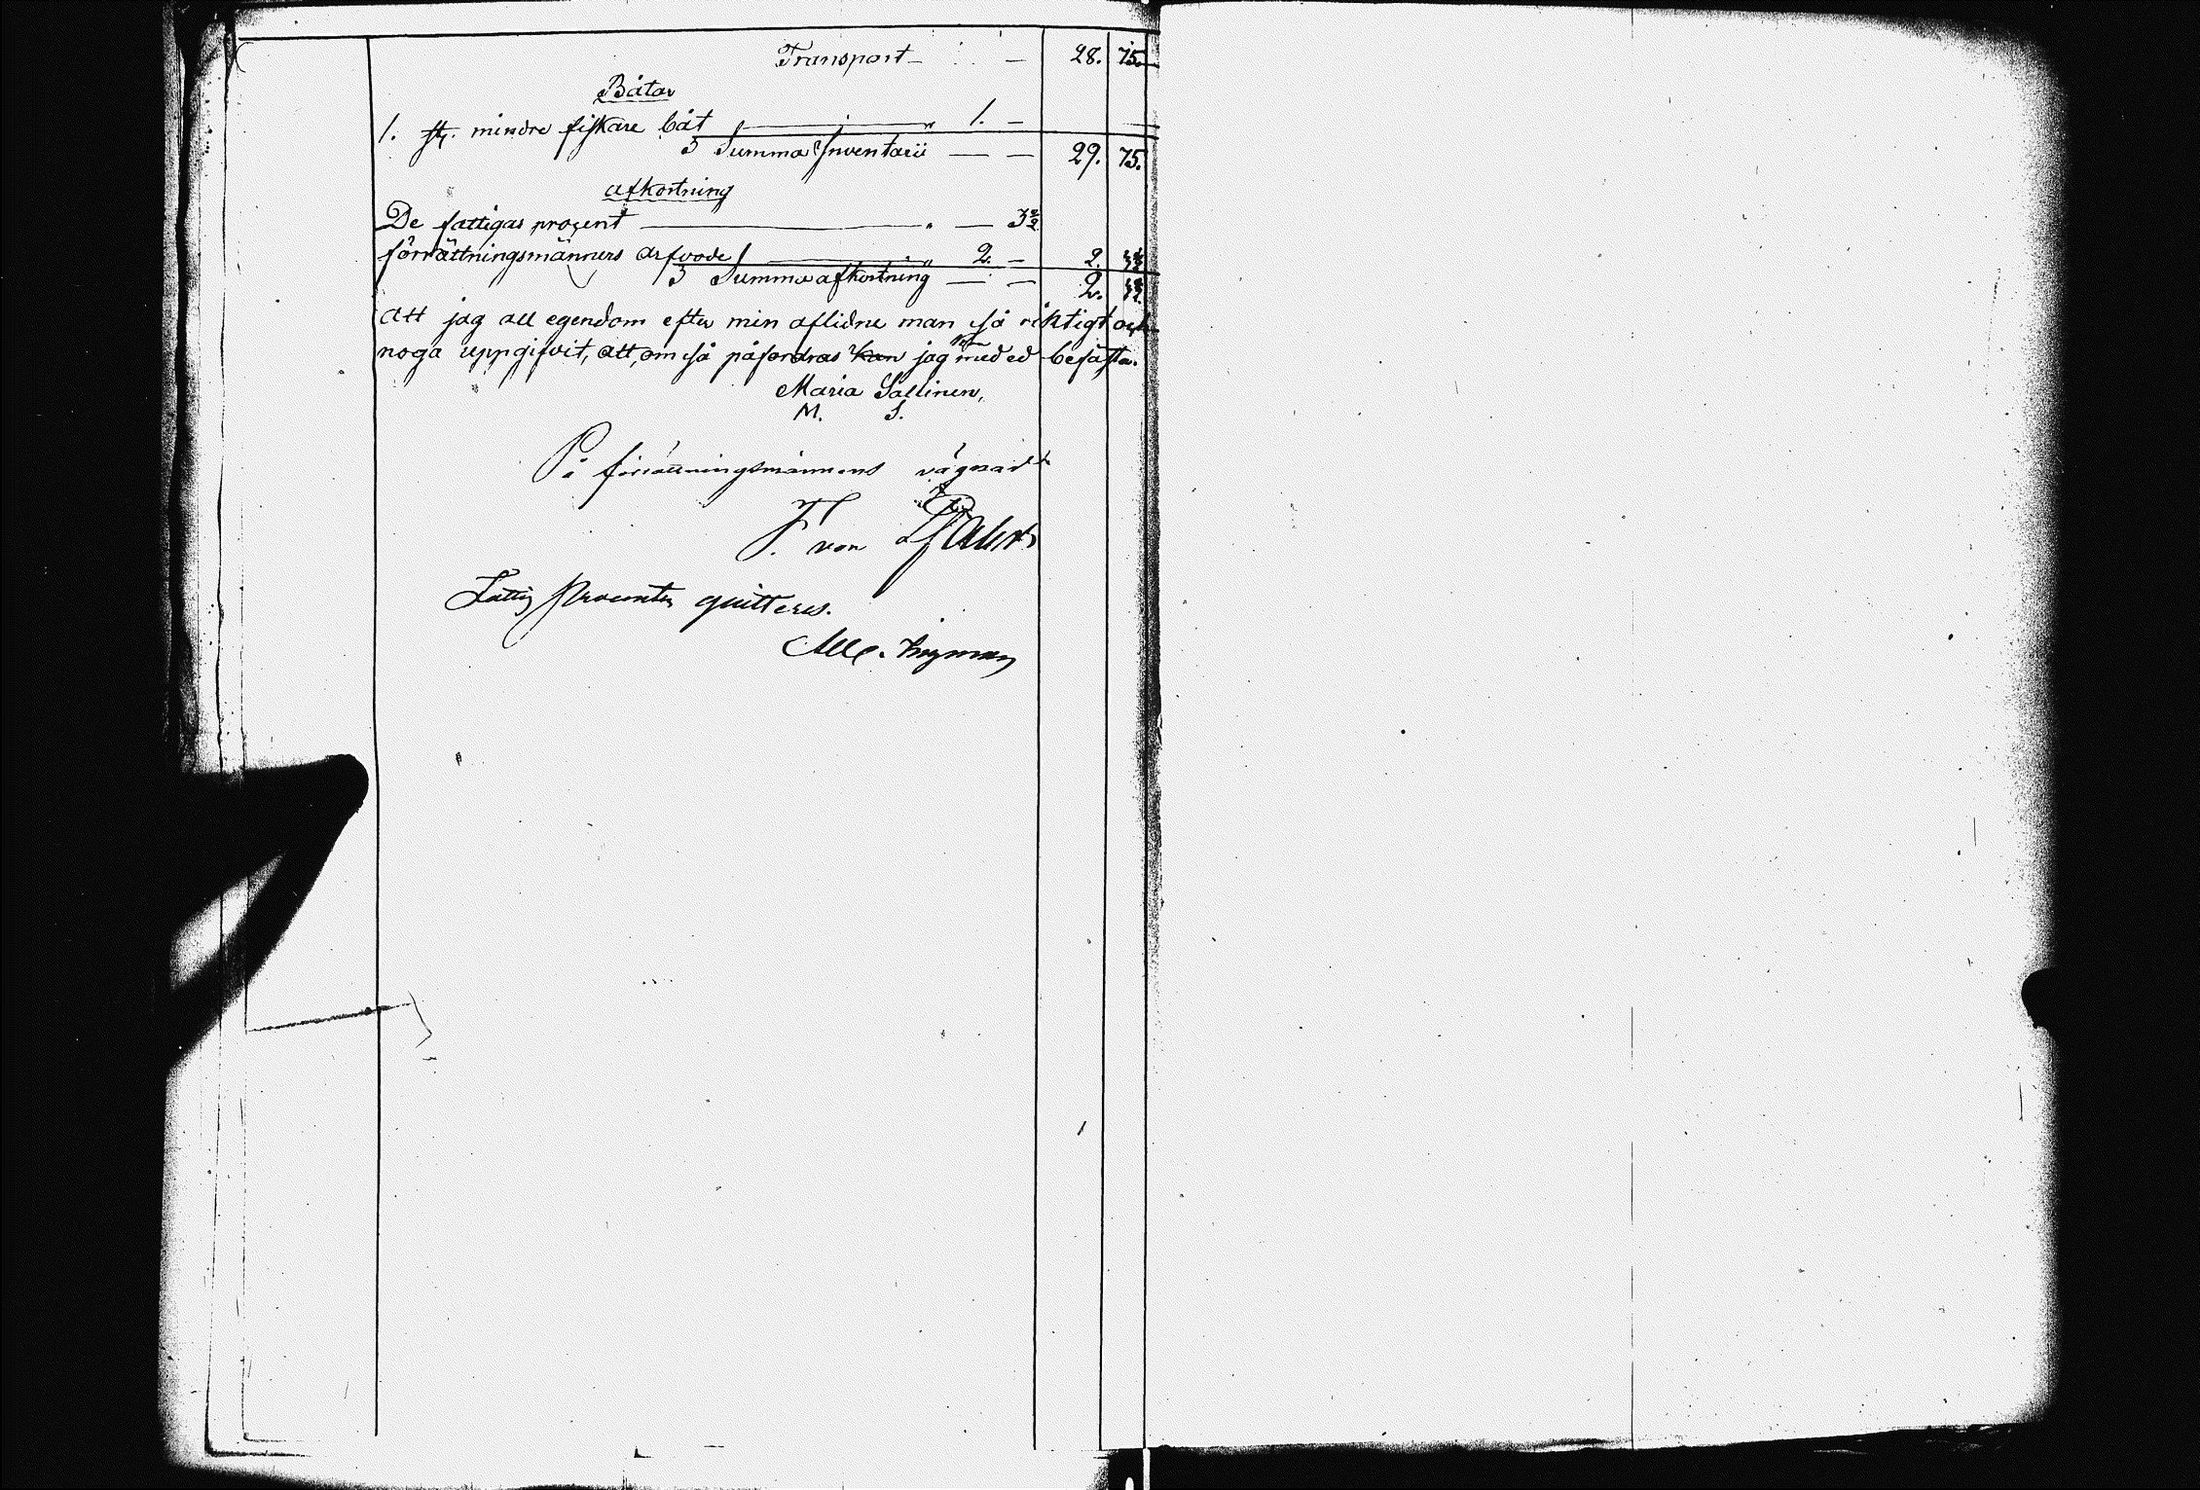 Transport — — 28. 75.
Båtar
1. st. mindre fiskare båt — " 1. —
S Summa Inventarii — — 29. 75.
afkortning
De fattigas procent — " — 3½
förrättningsmänners arfvode — " 2. — 2. 3½
S Summa afkortning — — 2. 3½
Att jag all egendom efter min aflidne man så riktigt och
noga uppgifvit, att, om så påfordras kan jag med ed befästa.
Maria Sallinen,
M. S.
På förrättningsmännens vägnar
F. von
Fattig Procenten quitteras.